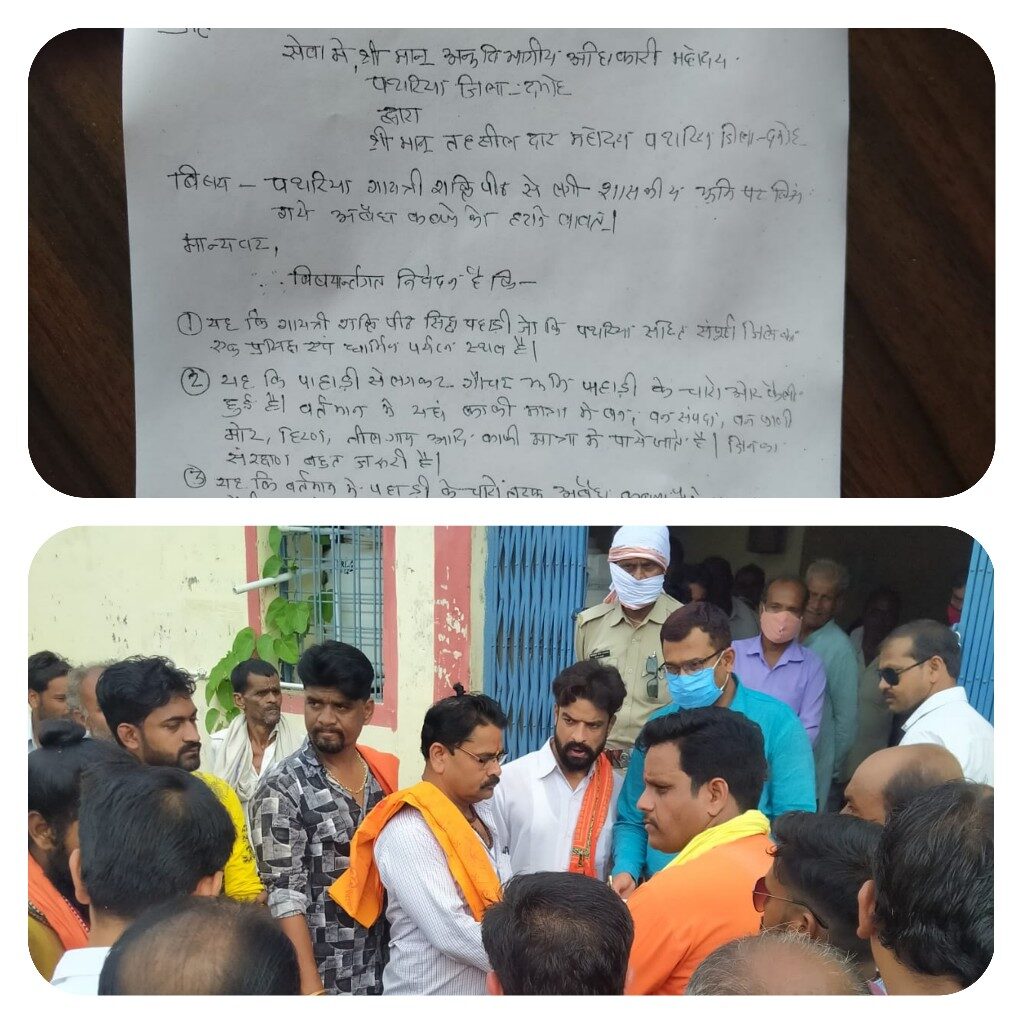 सेवा में, श्री मान् अनुविभागीय अधिकारी महोदय
पथरिया जिला - दमोह
द्वारा
श्री मान् तहसील दार महोदय पथरिया जिला - दमोह
विषय - पथरिया गायत्री शक्ति पीठ से लगी शासकीय भूमि पर किये
गये अवैध कब्जे को हटाने बावत।
मान्यवर,
विषयार्न्तगत निवेदन है कि -
① यह कि गायत्री शक्ति पीठ सिद्ध पहाडी जो कि पथरिया सहित संपूर्ण जिले का
एक प्रसिद्ध एवं धार्मिक पर्यटन स्थल है।
② यह कि पाहाड़ी से लगकर गौचर भूमि पाहाड़ी के चारो ओर फैली
हुई है। वर्तमान मे यहां काफी मात्रा मे वन, वन संपदा, वन प्राणी
मोर, हिरण, नील गाय आदि काफी मात्रा मे पाये जाते है। जिनका
संरक्षण बहुत जरुरी है।
③ यह कि वर्तमान मे पहाड़ी के चारो तरफ अवैध